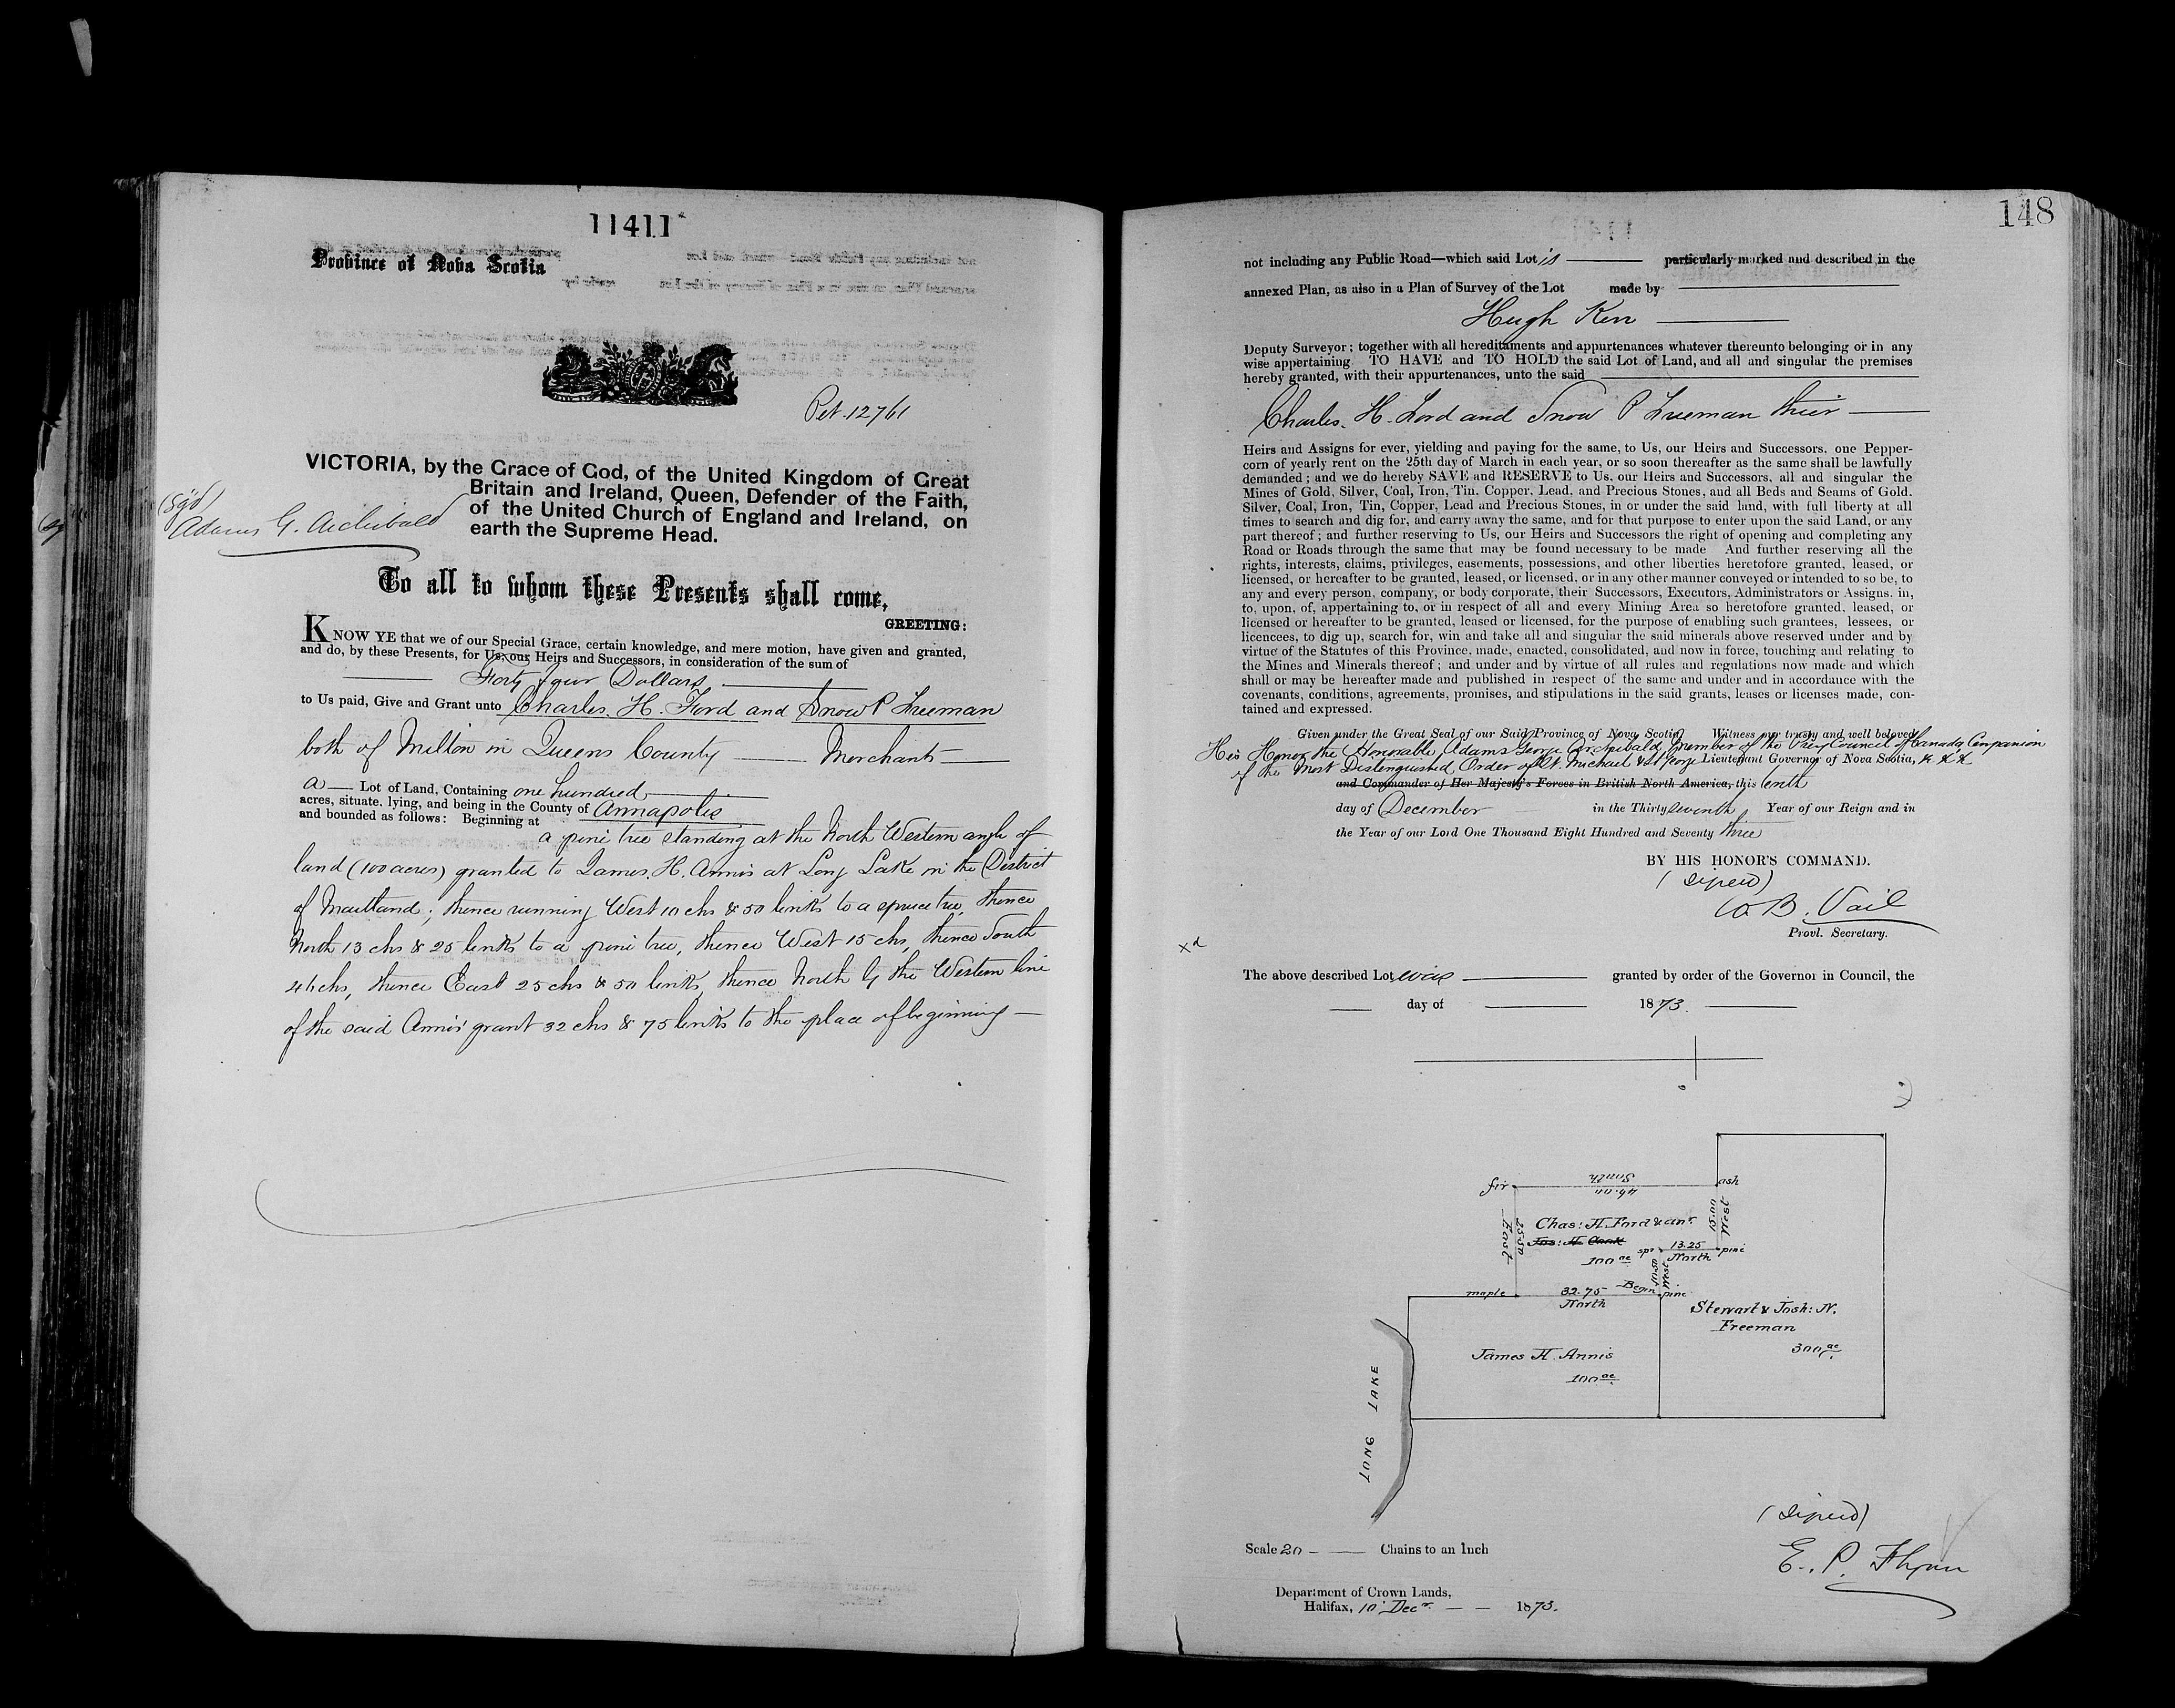 11411
Province of Nova Scotia
Pet. 12761
VICTORIA, by the Grace of God, of the United Kingdom of Great
Britain and Ireland, Queen, Defender of the Faith,
of the United Church of England and Ireland, on
earth the Supreme Head.
(Sgd)
Adams G. Archibald
To all to whom these Presents shall come,
GREETING:
KNOW YE that we of our Special Grace, certain knowledge, and mere motion, have given and granted,
and do, by these Presents, for Us, our Heirs and Successors, in consideration of the sum of
Forty four Dollars
to Us paid, Give and Grant unto Charles. H. Ford and Snow P Freeman
both of Milton in Queens County — Merchants —
a — Lot of Land, Containing one hundred
acres, situate, lying, and being in the County of Annapolis
and bounded as follows: Beginning at
a pine tree standing at the North Western angle of
land (100 acres) granted to James. H. Annis at Long Lake in the District
of Maitland; thence running West 10 chs & 50 links to a spruce tree, thence
North 13 chs & 25 links to a pine tree, thence West 15 chs, thence South
46 chs, thence East 25 chs & 50 links, thence North by the Western line
of the said Annis' grant 32 chs & 75 links to the place of beginning —
148
not including any Public Road—which said Lot is — particularly marked and described in the
annexed Plan, as also in a Plan of Survey of the Lot made by
Hugh Kerr
Deputy Surveyor; together with all hereditaments and appurtenances whatever thereunto belonging or in any
wise appertaining. TO HAVE and TO HOLD the said Lot of Land, and all and singular the premises
hereby granted, with their appurtenances, unto the said
Charles. H. Ford and Snow P Freeman their
Heirs and Assigns for ever, yielding and paying for the same, to Us, our Heirs and Successors, one Pepper-
corn of yearly rent on the 25th day of March in each year, or so soon thereafter as the same shall be lawfully
demanded; and we do hereby SAVE and RESERVE to Us, our Heirs and Successors, all and singular the
Mines of Gold, Silver, Coal, Iron, Tin, Copper, Lead, and Precious Stones, and all Beds and Seams of Gold,
Silver, Coal, Iron, Tin, Copper, Lead and Precious Stones, in or under the said land, with full liberty at all
times to search and dig for, and carry away the same, and for that purpose to enter upon the said Land, or any
part thereof; and further reserving to Us, our Heirs and Successors the right of opening and completing any
Road or Roads through the same that may be found necessary to be made And further reserving all the
rights, interests, claims, privileges, easements, possessions, and other liberties heretofore granted, leased, or
licensed, or hereafter to be granted, leased, or licensed, or in any other manner conveyed or intended to so be, to
any and every person, company, or body corporate, their Successors, Executors, Administrators or Assigns, in,
to, upon, of, appertaining to, or in respect of all and every Mining Area so heretofore granted, leased, or
licensed or hereafter to be granted, leased or licensed, for the purpose of enabling such grantees, lessees, or
licencees, to dig up, search for, win and take all and singular the said minerals above reserved under and by
virtue of the Statutes of this Province, made, enacted, consolidated, and now in force, touching and relating to
the Mines and Minerals thereof; and under and by virtue of all rules and regulations now made and which
shall or may be hereafter made and published in respect of the same and under and in accordance with the
covenants, conditions, agreements, promises, and stipulations in the said grants, leases or licenses made, con-
tained and expressed.
Given under the Great Seal of our Said Province of Nova Scotia Witness my trusty and well beloved
His Honor the Honorable Adams George Archibald, member of the Privy Council of Canada, Companion
of the Most Distinguished Order of St. Michael & St George Lieutenant Governor of Nova Scotia, &. &. &
and Commander of Her Majesty's Forces in British North America, this tenth
day of December in the Thirty seventh Year of our Reign and in
the Year of our Lord One Thousand Eight Hundred and Seventy three
BY HIS HONOR'S COMMAND.
(signed)
W. B. Vail
Provl. Secretary.
The above described Lot was — granted by order of the Governor in Council, the
— day of — 1873.
fir
South
46.00
ash
15.00
West
25.50
East
Chas: H. Ford & anr.
Jas: H. Cook
100 ac
spr
13.25
North
pine
10.50
West
maple
32.75
North
Begin
pine
Stewart & Josh: N.
Freeman
300 ac.
James H. Annis
100 ac.
LONG LAKE
Scale 20 — Chains to an Inch
(signed)
E. P. Flynn
Department of Crown Lands,
Halifax, 10' Decr. — — 1873.